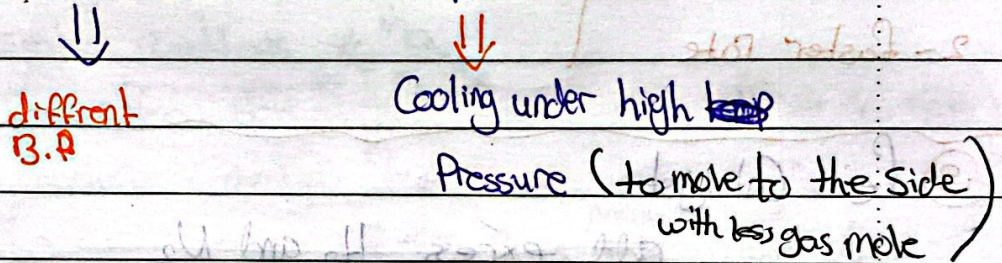 ⇓ ⇓
diffrent
B.P
Cooling under high
Pressure (to move to the side
with less gas mole)